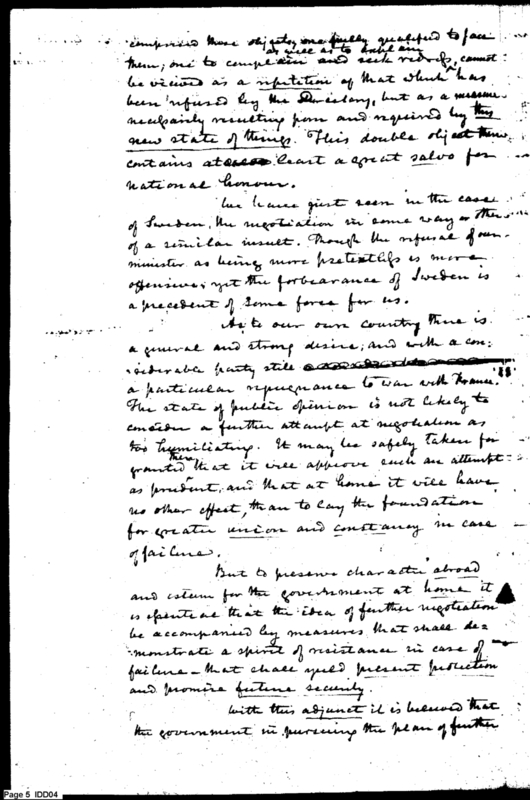 comprised those objects, one fully qualified to face
as well as to explain
them; one to complain and seek redress, cannot
be viewed as a repetition of that which has
been refused by the Directory, but as a measure
necessarily resulting from and required by this
new state of things. This double object
contains at least a great salvo for
national honour.
We have just seen in the case
of Sweden, the negotiation in some way or other
of a similar insult. Though the refusal of our
minister as being more pretextless is more
offensive; yet the forbearance of Sweden is
a precedent of some force for us.
As to our own country there is
a general and strong desire; and with a con-
siderable party still
a particular repugnance to war with France.
The state of public opinion is not likely to
consider a further attempt at negotiation as
too humiliating. It may be safely taken for
there
granted that it will approve such an attempt
as prudent, and that at home it will have
no other effect, than to lay the foundation
for greater union and constancy in case
of failure.
But to preserve character abroad
and esteem for the government at home it
is essential that the idea of further negotiation
be accompanied by measures that shall de-
monstrate a spirit of resistance in case of
failure—that shall yield present protection
and promise future security.
With this adjunct it is believed that
the government in pursuing the plan of further
Page 5 IDD04